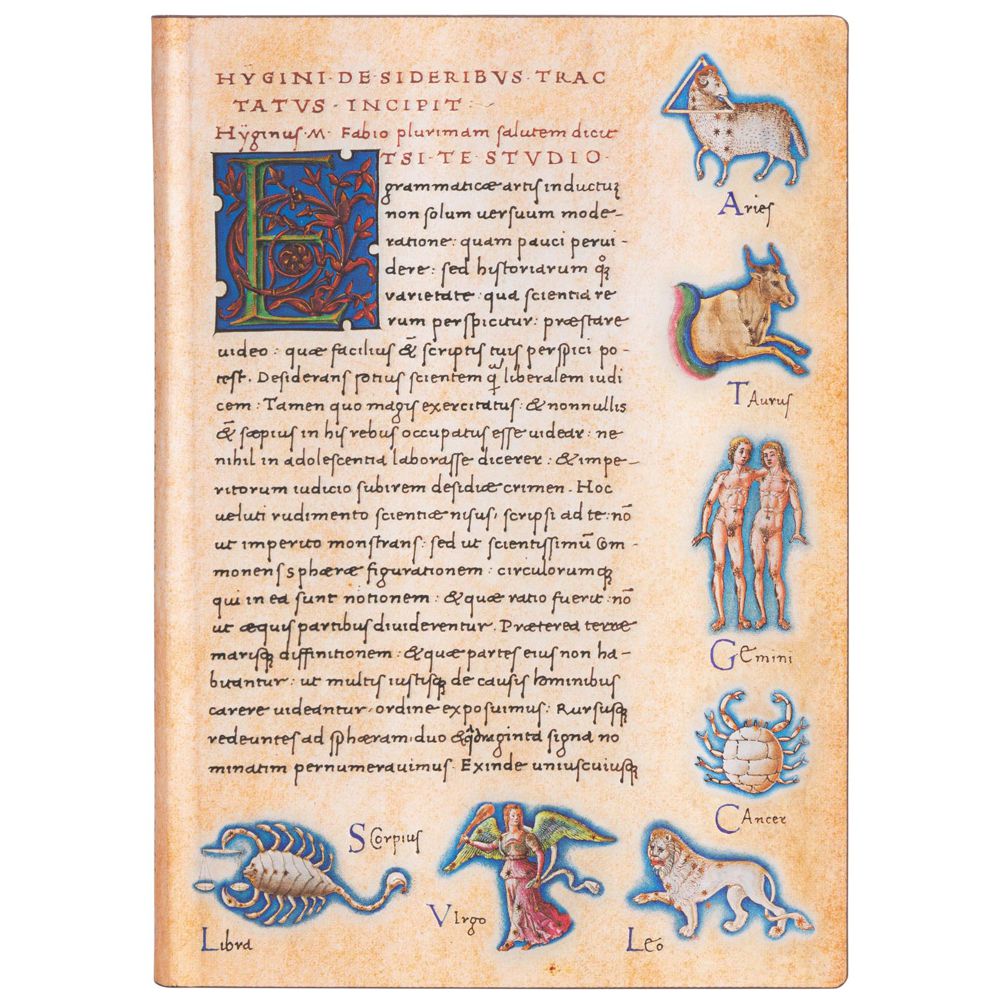 HYGINI · DE · SIDERIBVS · TRAC
TATVS · INCIPIT :
Hÿginus · M · Fabio plurimam salutem dicit
ETSI · TE · STVDIO ·
grammaticæ artis inductuꝫ
non solum uersuum mode-
ratione : quam pauci perui-
dere : sed historiarum qͦꝫ
varietate : qua scientia re
rum perspicitur : præstare
uideo : quæ facilius & scriptis tuis perspici po-
test. Desiderans potius scientem q̃ liberalem iudi
cem : Tamen quo magis exercitatus : & nonnullis
& sæpius in his rebus occupatus esse uidear : ne
nihil in adolescentia laborasse dicerer : & impe-
ritorum iudicio subirem desidiæ crimen. Hoc
ueluti rudimento scientiæ nisus, scripsi ad te : nō
ut imperito monstrans : sed ut scientissimū Com-
monens sphæræ figurationem : circulorumqꝫ
qui in ea sunt notionem : & quæ ratio fuerit : nō
ut æquis partibus diuiderentur. Præterea terræ
marisqꝫ diffinitionem : & quæ partes eius non ha-
bitantur : ut multis iustisqꝫ de causis hominibus
carere uideantur, ordine exposuimus : Rursusqꝫ
redeuntes ad sphæram, duo & qdraginta signa no
minatim pernumerauimus · Exinde uniuscuiusqꝫ
Aries
TAurus
GEmini
CAncer
LEo
VIrgo
SCorpius
Libra